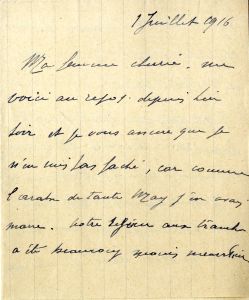 1 Juillet 1916
Ma femme chérie, me
voici au repos depuis hier
soir et je vous assure que je
n'en suis pas faché, car comme
l'arabe de tante May j'en avais
marre. Notre séjour aux tranch
a été beaucoup moins meurtrier